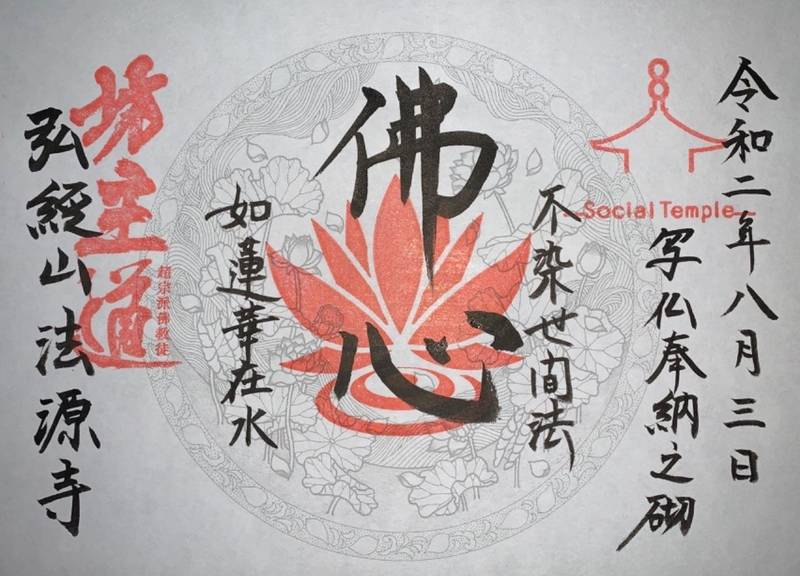 令和二年八月三日
写仏奉納之砌
Social Temple
不染世間法
佛心
如蓮華在水
坊主道
超宗派佛教徒
弘經山法源寺